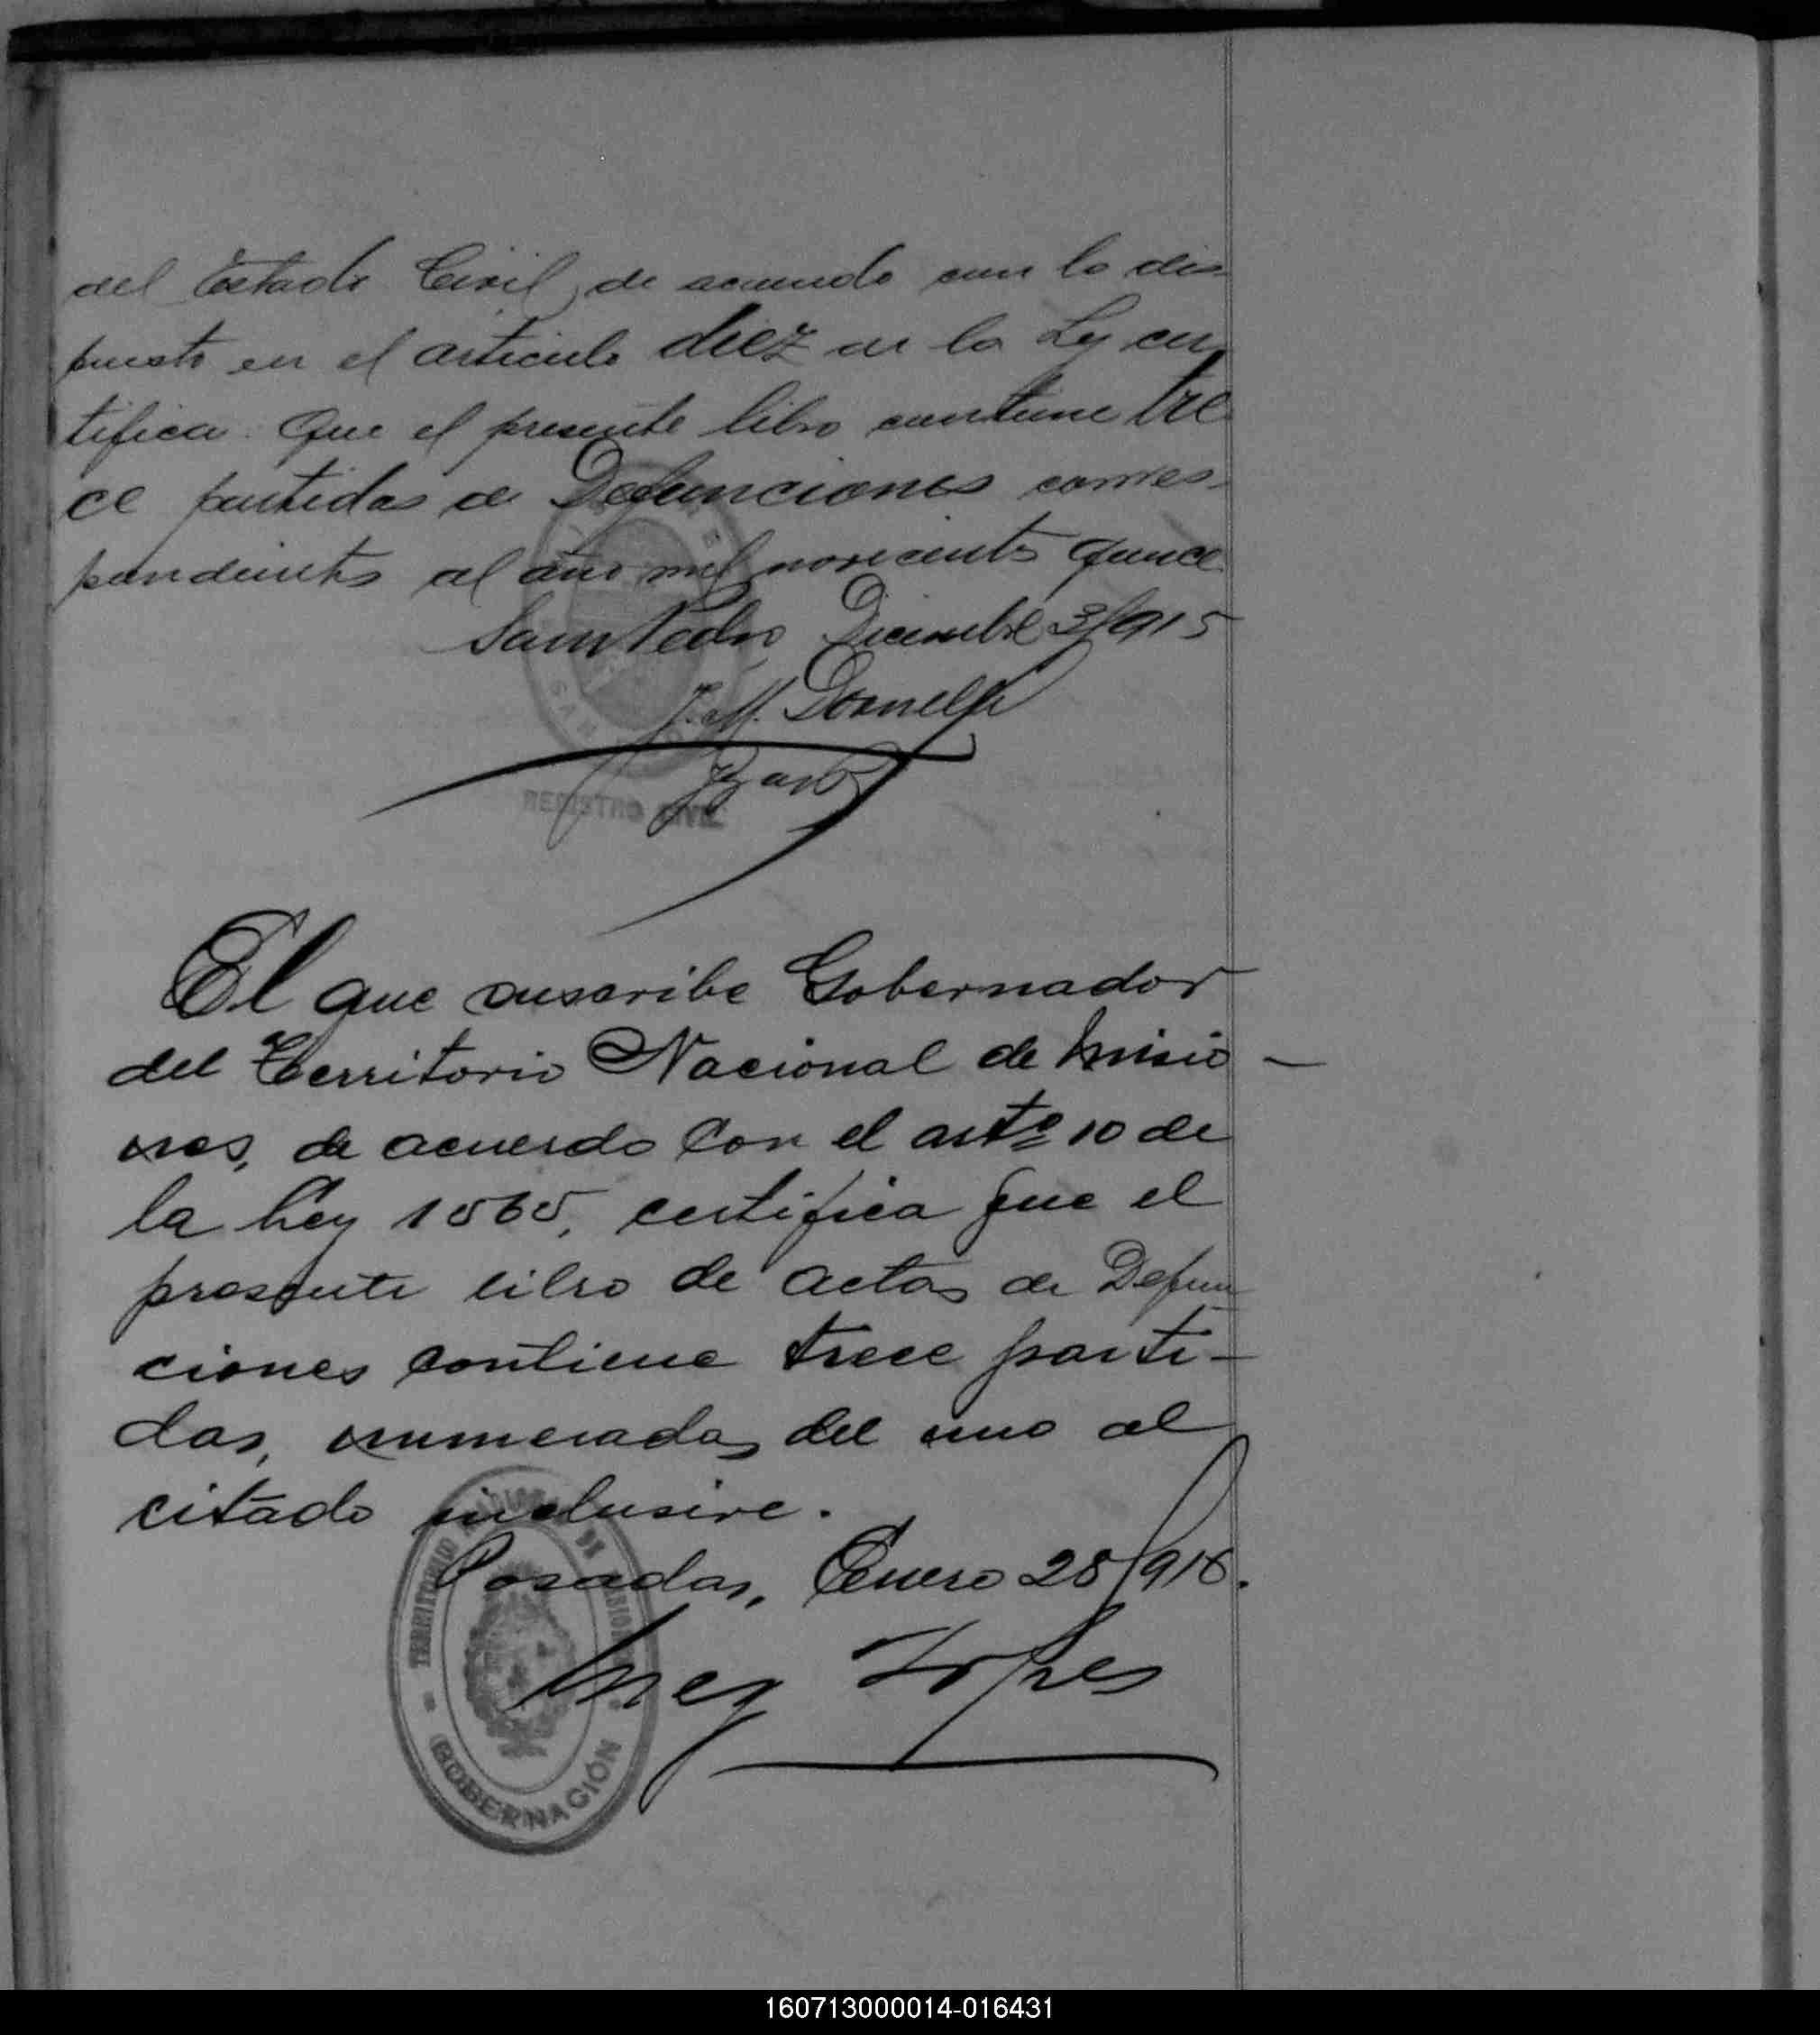 del Estado Civil, de acuerdo con lo dis-
puesto en el articulo diez de la Ley cer-
tifica. Que el presente libro contiene tre-
ce partidas de Defunciones corres-
pondientes al año mil novecientos quince
San Pedro, Diciembre 31/915
J. M.
REGISTRO CIVIL
El que suscribe Gobernador
del Territorio Nacional de Misio-
nes, de acuerdo con el artº 10 de
la Ley 1565, certifica que el
presente libro de actas de Defun
ciones contiene trece parti-
das, numeradas del uno al
citado inclusive.
Posadas, Enero 28/916.
TERRITORIO NACIONAL DE MISIONES
GOBERNACIÓN
160713000014-016431